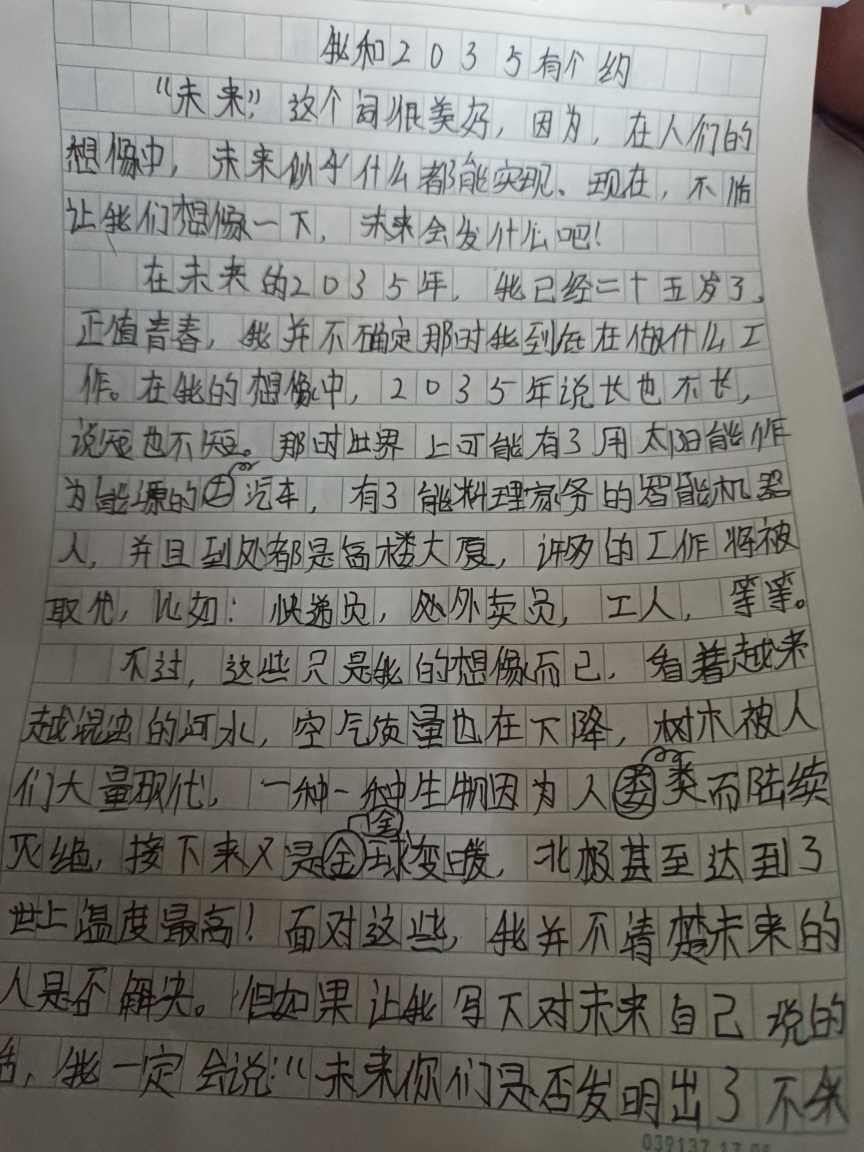 我和2035有个约
“未来”,这个词很美好，因为，在人们的
想像中，未来似乎什么都能实现、现在，不妨
让我们想像一下，未来会发什么吧！
在未来的2035年，我已经二十五岁了，
正值青春，我并不确定那时我到底在做什么工
作。在我的想像中，2035年说长也不长，
说短也不短。那时世界上可能有了用太阳能作
为能源的汽车，有了能料理家务的智能机器
人，并且到处都是高楼大厦，许多的工作将被
取代，比如：快递员，外卖员，工人，等等。
不过，这些只是我的想像而已，看着越来
越混浊的河水，空气质量也在下降，树木被人
们大量取代，一种一种生物因为人类而陆续
灭绝，接下来又是全球变暖，北极甚至达到了
世上温度最高！面对这些，我并不清楚未来的
人是否解决。但如果让我写下对未来自己说的
话，我一定会说：“未来你们是否发明出了不
039137